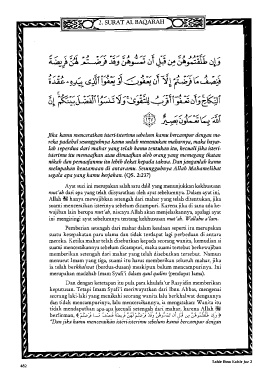 2. SURAT AL BAQARAH
وَإِن طَلَّقْتُمُوهُنَّ مِن قَبْلِ أَن تَمَسُّوهُنَّ وَقَدْ فَرَضْتُمْ لَهُنَّ فَرِيضَةً
فَنِصْفُ مَا فَرَضْتُمْ إِلَّا أَن يَعْفُونَ أَوْ يَعْفُوَا۟ ٱلَّذِى بِيَدِهِۦ عُقْدَةُ
ٱلنِّكَاحِ وَأَن تَعْفُوٓا۟ أَقْرَبُ لِلتَّقْوَىٰ وَلَا تَنسَوُا۟ ٱلْفَضْلَ بَيْنَكُمْ إِنَّ
ٱللَّهَ بِمَا تَعْمَلُونَ بَصِيرٌ
Jika kamu menceraikan isteri-isterimu sebelum kamu bercampur dengan me-
reka padahal sesungguhnya kamu sudah menentukan maharnya, maka bayar-
lah seperdua dari mahar yang telah kamu tentukan itu, kecuali jika isteri-
isterimu itu memaafkan atau dimaafkan oleh orang yang memegang ikatan
nikah dan pemaafanmu itu lebih dekat kepada takwa. Dan janganlah kamu
melupakan keutamaan di antaramu. Sesungguhnya Allah Mahamelihat
segala apa yang kamu kerjakan. (QS. 2:237)
Ayat suci ini merupakan salah satu dalil yang menunjukkan kekhususan
mut'ah dari apa yang telah disyariatkan oleh ayat sebelumnya. Dalam ayat ini,
Allah hanya mewajibkan setengah dari mahar yang telah ditentukan, jika
suami menceraikan isterinya sebelum dicampuri. Karena jika di sana ada ke-
wajiban lain berupa mut'ah, niscaya Allah akan menjelaskannya, apalagi ayat
ini mengiringi ayat sebelumnya tentang kekhususan mut'ah. Wallahu a'lam.
Pemberian setengah dari mahar dalam keadaan seperti itu merupakan
suatu kesepakatan para ulama dan tidak terdapat lagi perbedaan di antara
mereka. Ketika mahar telah disebutkan kepada seorang wanita, kemudian si
suami menceraikannya sebelum dicampuri, maka suami tersebut berkewajiban
memberikan setengah dari mahar yang telah disebutkan tersebut. Namun
menurut Imam yang tiga, suami itu harus memberikan seluruh mahar, jika
ia telah berkhalwat (berdua-duaan) meskipun belum mencampurinya. Ini
merupakan madzhab Imam Syafi'i dalam qaul qadim (pendapat lama).
Dan dengan ketetapan itu pula para khulafa'ur Rasyidin memberikan
keputusan. Tetapi Imam Syafi'i meriwayatkan dari Ibnu Abbas, mengenai
seorang laki-laki yang menikahi seorang wanita lalu berkhalwat dengannya
dan tidak mencampurinya, lalu menceraikannya, ia mengatakan: Wanita itu
tidak mendapatkan apa-apa kecuali setengah dari mahar, karena Allah
berfirman, ﴿ وَإِن طَلَّقْتُمُوهُنَّ مِن قَبْلِ أَن تَمَسُّوهُنَّ وَقَدْ فَرَضْتُمْ لَهُنَّ فَرِيضَةً فَنِصْفُ مَا فَرَضْتُمْ ﴾
"Dan jika kamu menceraikan isteri-isterimu sebelum kamu bercampur dengan
482
Tafsir Ibnu Katsir Juz 2